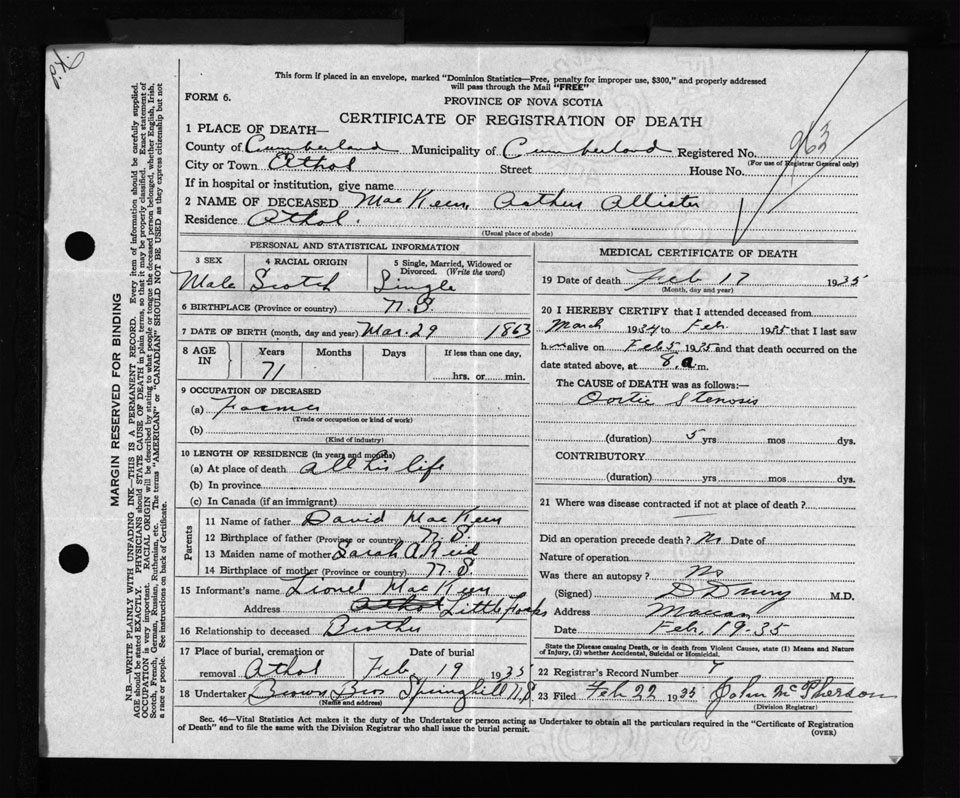 P.X.
This form if placed in an envelope, marked "Dominion Statistics—Free, penalty for improper use, $300," and properly addressed
will pass through the Mail "FREE"
FORM 6.
PROVINCE OF NOVA SCOTIA
CERTIFICATE OF REGISTRATION OF DEATH
1 PLACE OF DEATH—
County of Cumberland Municipality of Cumberland Registered No. 963
(For use of Registrar General only)
City or Town Athol Street House No.
If in hospital or institution, give name
2 NAME OF DECEASED MacKeen Arthur Allister
Residence Athol
(Usual place of abode)
PERSONAL AND STATISTICAL INFORMATION
3 SEX 4 RACIAL ORIGIN 5 Single, Married, Widowed or
Divorced. (Write the word)
Male Scotch Single
6 BIRTHPLACE (Province or country) N.S.
7 DATE OF BIRTH (month, day and year) Mar. 29 1863
8 AGE IN Years Months Days If less than one day,
71 hrs. or min.
9 OCCUPATION OF DECEASED
(a) Farmer
(Trade or occupation or kind of work)
(b)
(Kind of industry)
10 LENGTH OF RESIDENCE (in years and months)
(a) At place of death all his life
(b) In province
(c) In Canada (if an immigrant)
Parents
11 Name of father David MacKeen
12 Birthplace of father (Province or country) N.S.
13 Maiden name of mother Sarah A Reid
14 Birthplace of mother (Province or country) N.S.
15 Informant's name Lionel MacKeen
Address Athol Little Forks
16 Relationship to deceased Brother
17 Place of burial, cremation or Date of burial
removal Athol Feb 19 1935
18 Undertaker Brown Bros Springhill N.S.
(Name and address)
MEDICAL CERTIFICATE OF DEATH
19 Date of death Feb 17 1935
(Month, day and year)
20 I HEREBY CERTIFY that I attended deceased from
March 1934 to Feb 1935 that I last saw
him alive on Feb 5 1935 and that death occurred on the
date stated above, at 8.a m.
The CAUSE OF DEATH was as follows:—
Aortic Stenosis
(duration) 5 yrs mos dys.
CONTRIBUTORY
(duration) yrs mos dys.
21 Where was disease contracted if not at place of death?
Did an operation precede death? No Date of
Nature of operation
Was there an autopsy? No
(Signed) D Drury M.D.
Address Maccan
Date Feb, 19-35
State the Disease causing Death, or in death from Violent Causes, state (1) Means and Nature
of Injury, (2) whether Accidental, Suicidal or Homicidal.
22 Registrar's Record Number 7
23 Filed Feb 22 1935 John McPherson
(Division Registrar)
Sec. 46—Vital Statistics Act makes it the duty of the Undertaker or person acting as Undertaker to obtain all the particulars required in the "Certificate of Registration
of Death" and to file the same with the Division Registrar who shall issue the burial permit.
(OVER)
MARGIN RESERVED FOR BINDING
N.B.—WRITE PLAINLY WITH UNFADING INK—THIS IS A PERMANENT RECORD. Every item of information should be carefully supplied.
AGE should be stated EXACTLY. PHYSICIANS should STATE CAUSE OF DEATH in plain terms, so that it may be properly classified. Exact statement of
OCCUPATION is very important. RACIAL ORIGIN will be described by stating to what people or tongue the deceased person belonged, whether English, Irish,
Scotch, French, German, Russian, Ruthenian, etc. The terms "AMERICAN" or "CANADIAN" SHOULD NOT BE USED as they express citizenship but not
a race or people. See instructions on back of Certificate.